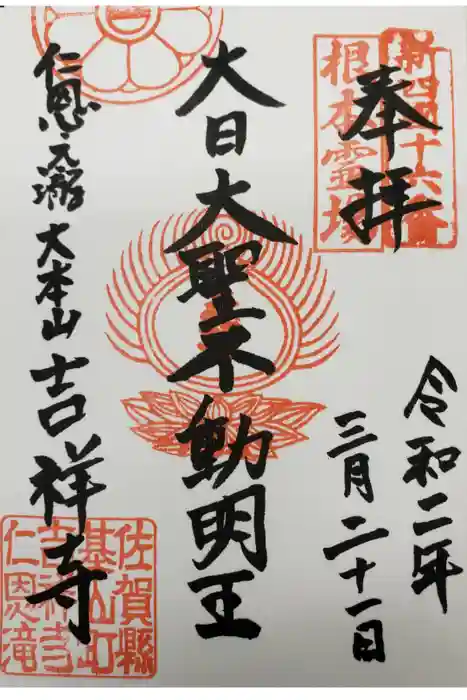 奉拝
根本霊場
令和二年
三月二十一日
大日大聖不動明王
仁恩之滝
大本山吉祥寺
佐賀縣
基山町
吉祥寺
仁恩滝